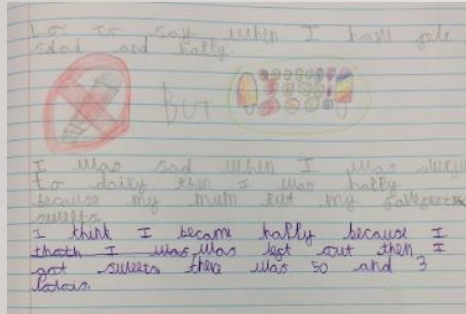 to say when I have felt
sad and happy.
BUT
I was sad when I was
to dairy then I was happy
because my mum put my
sweets.
I think I became happy because I
I was was left out then I
got sweets there was 50 and 3